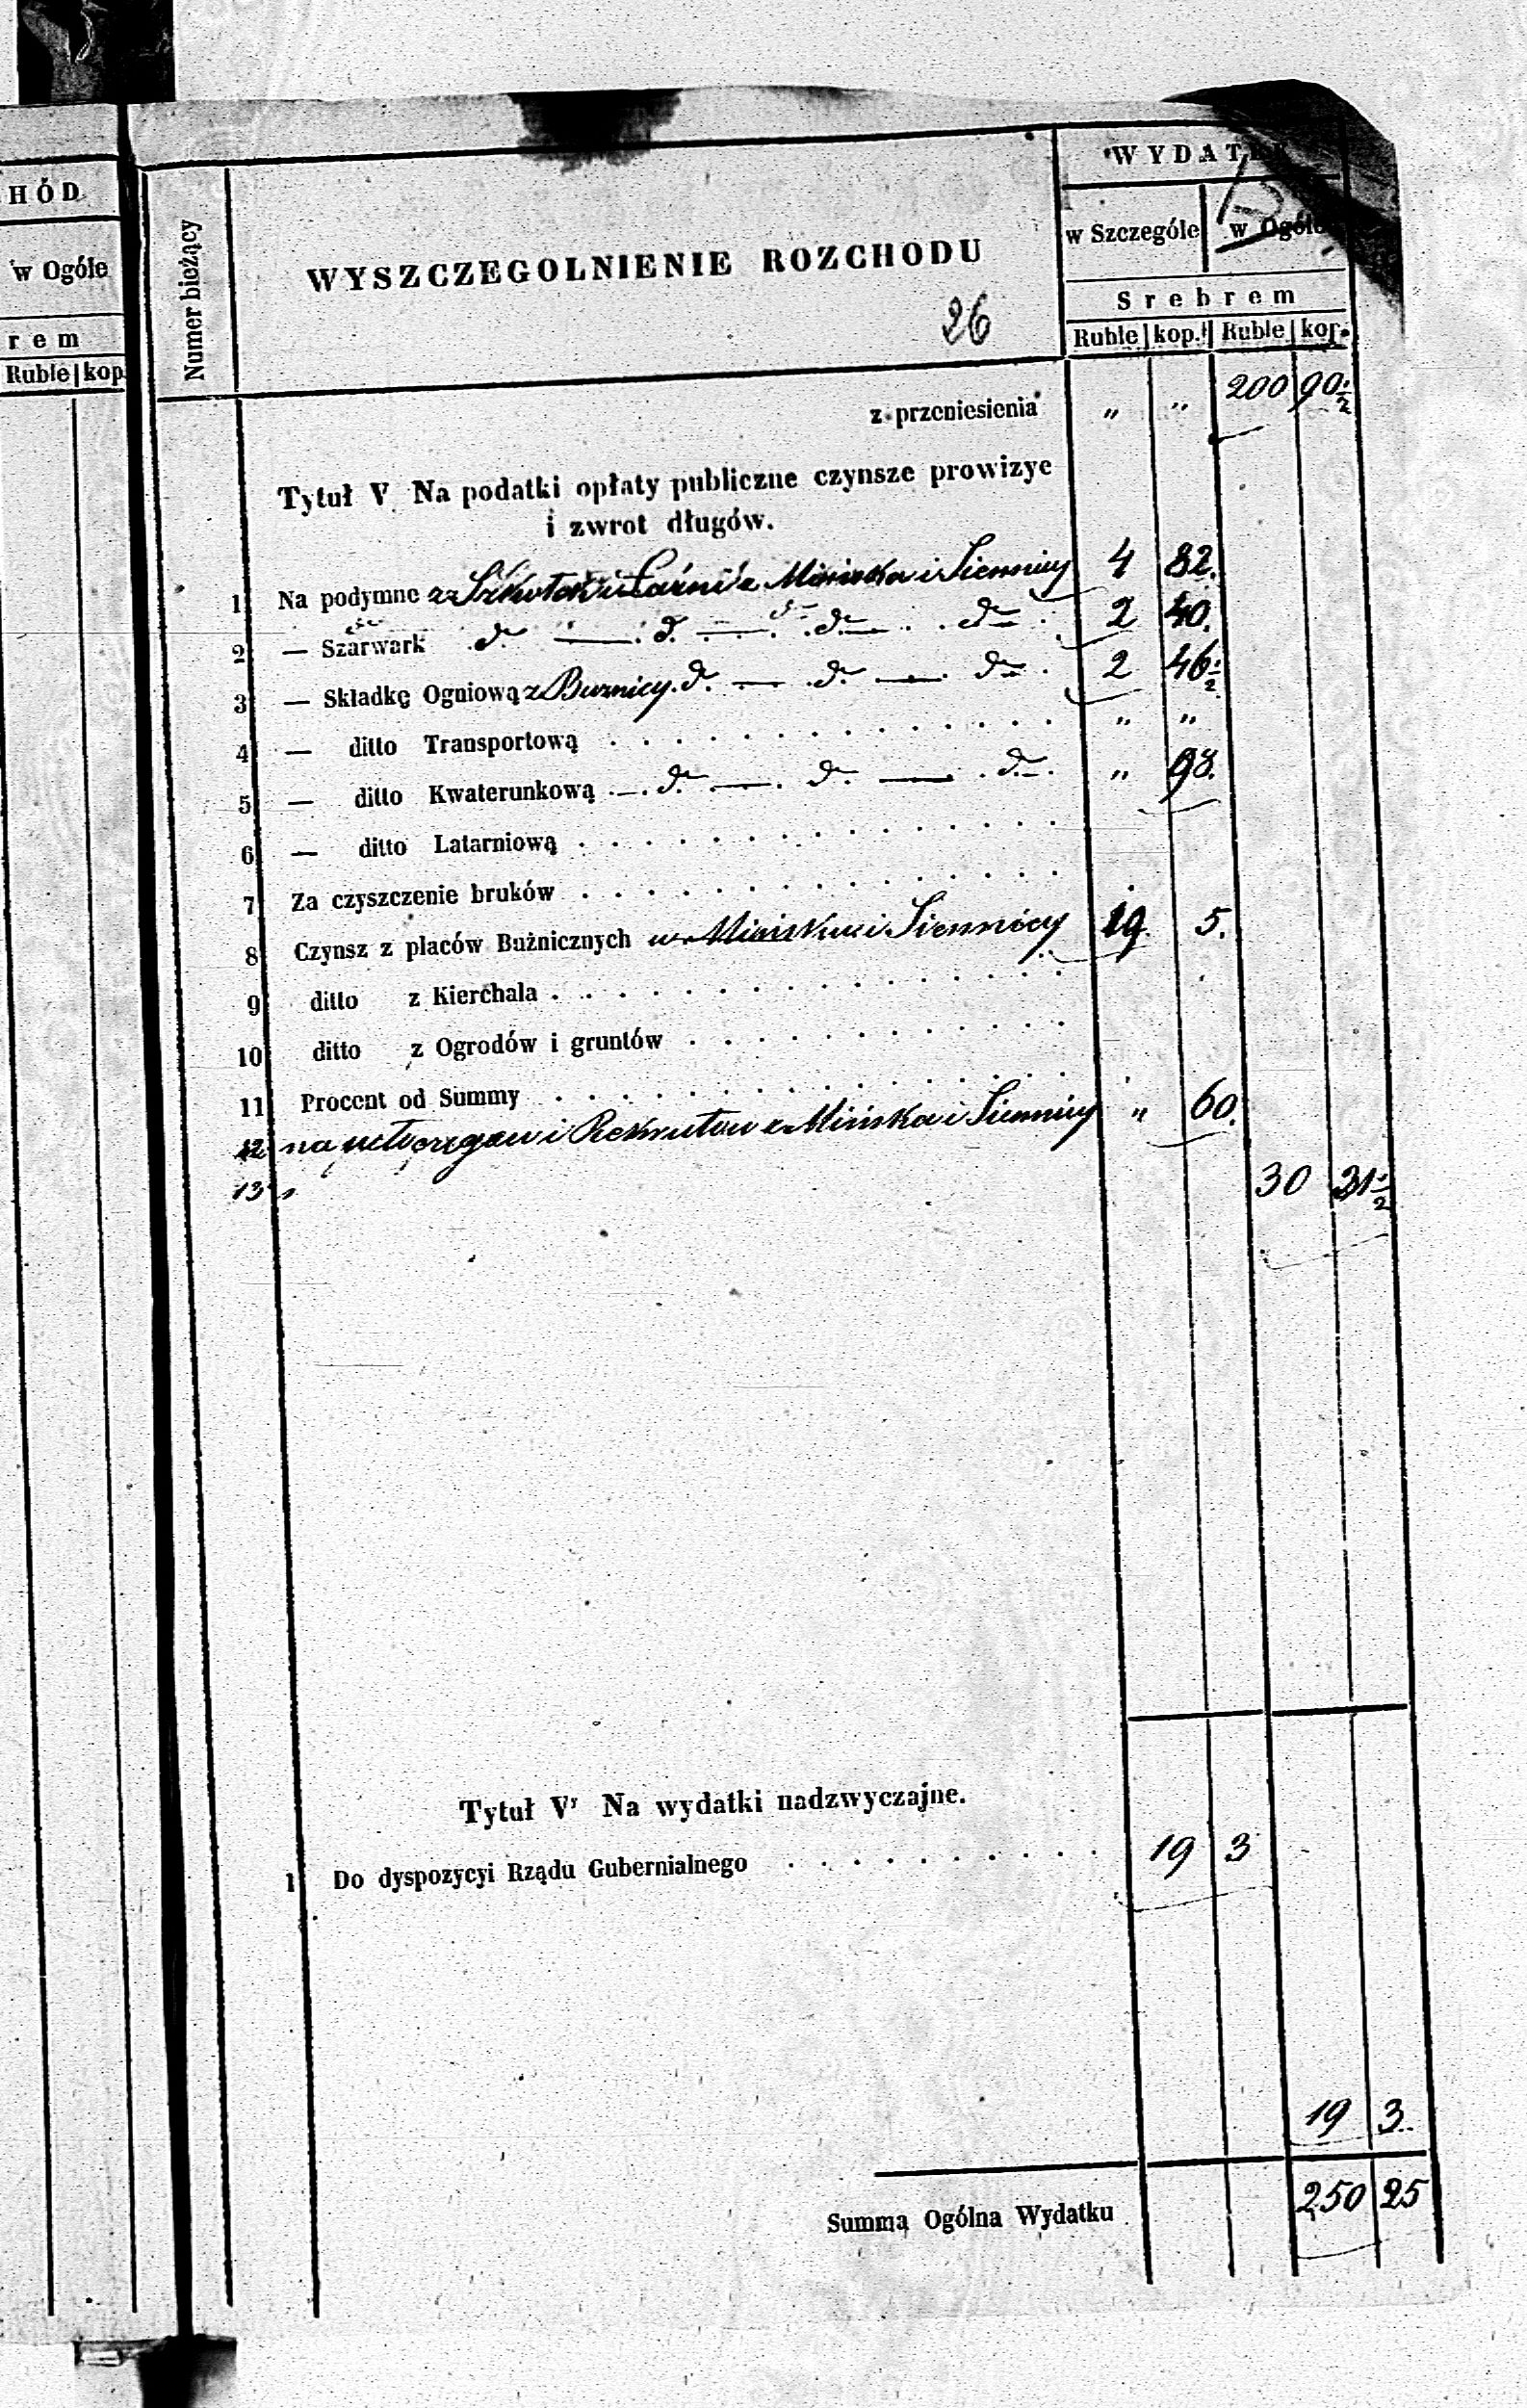 HÓD
w Ogóle
rem
Ruble kop
Numer bieżący
WYSZCZEGOLNIENIE ROZCHODU
26
WYDAT
w Szczególe w Ogóle
Srebrem
Ruble kop. Ruble kop.
z przeniesienia „ „ 200 90 1/2
Tytuł V Na podatki opłaty publiczne czynsze prowizye
i zwrot długów.
1 Na podymne z Szkoły i Łaźni z Mińska i Siennicy 4 82.
2 — Szarwark d. — d. — d. — d. 2 40.
3 — Składkę Ogniową z Buznicy d. — d. — d. 2 46 1/2
4 — ditto Transportową „ „
5 — ditto Kwaterunkową — d. — d. — d. „ 98.
6 — ditto Latarniową
7 Za czyszczenie bruków
8 Czynsz z placów Bużnicznych w Mińsku i Siennicy 19. 5.
9 ditto z Kierchala
10 ditto z Ogrodów i gruntów
11 Procent od Summy
12 na i Rekrutów z Mińska i Siennicy „ 60.
13 „
30 31 1/2
Tytuł VI Na wydatki nadzwyczajne.
1 Do dyspozycyi Rządu Gubernialnego 19 3
19 3.
Summa Ogólna Wydatku 250 25